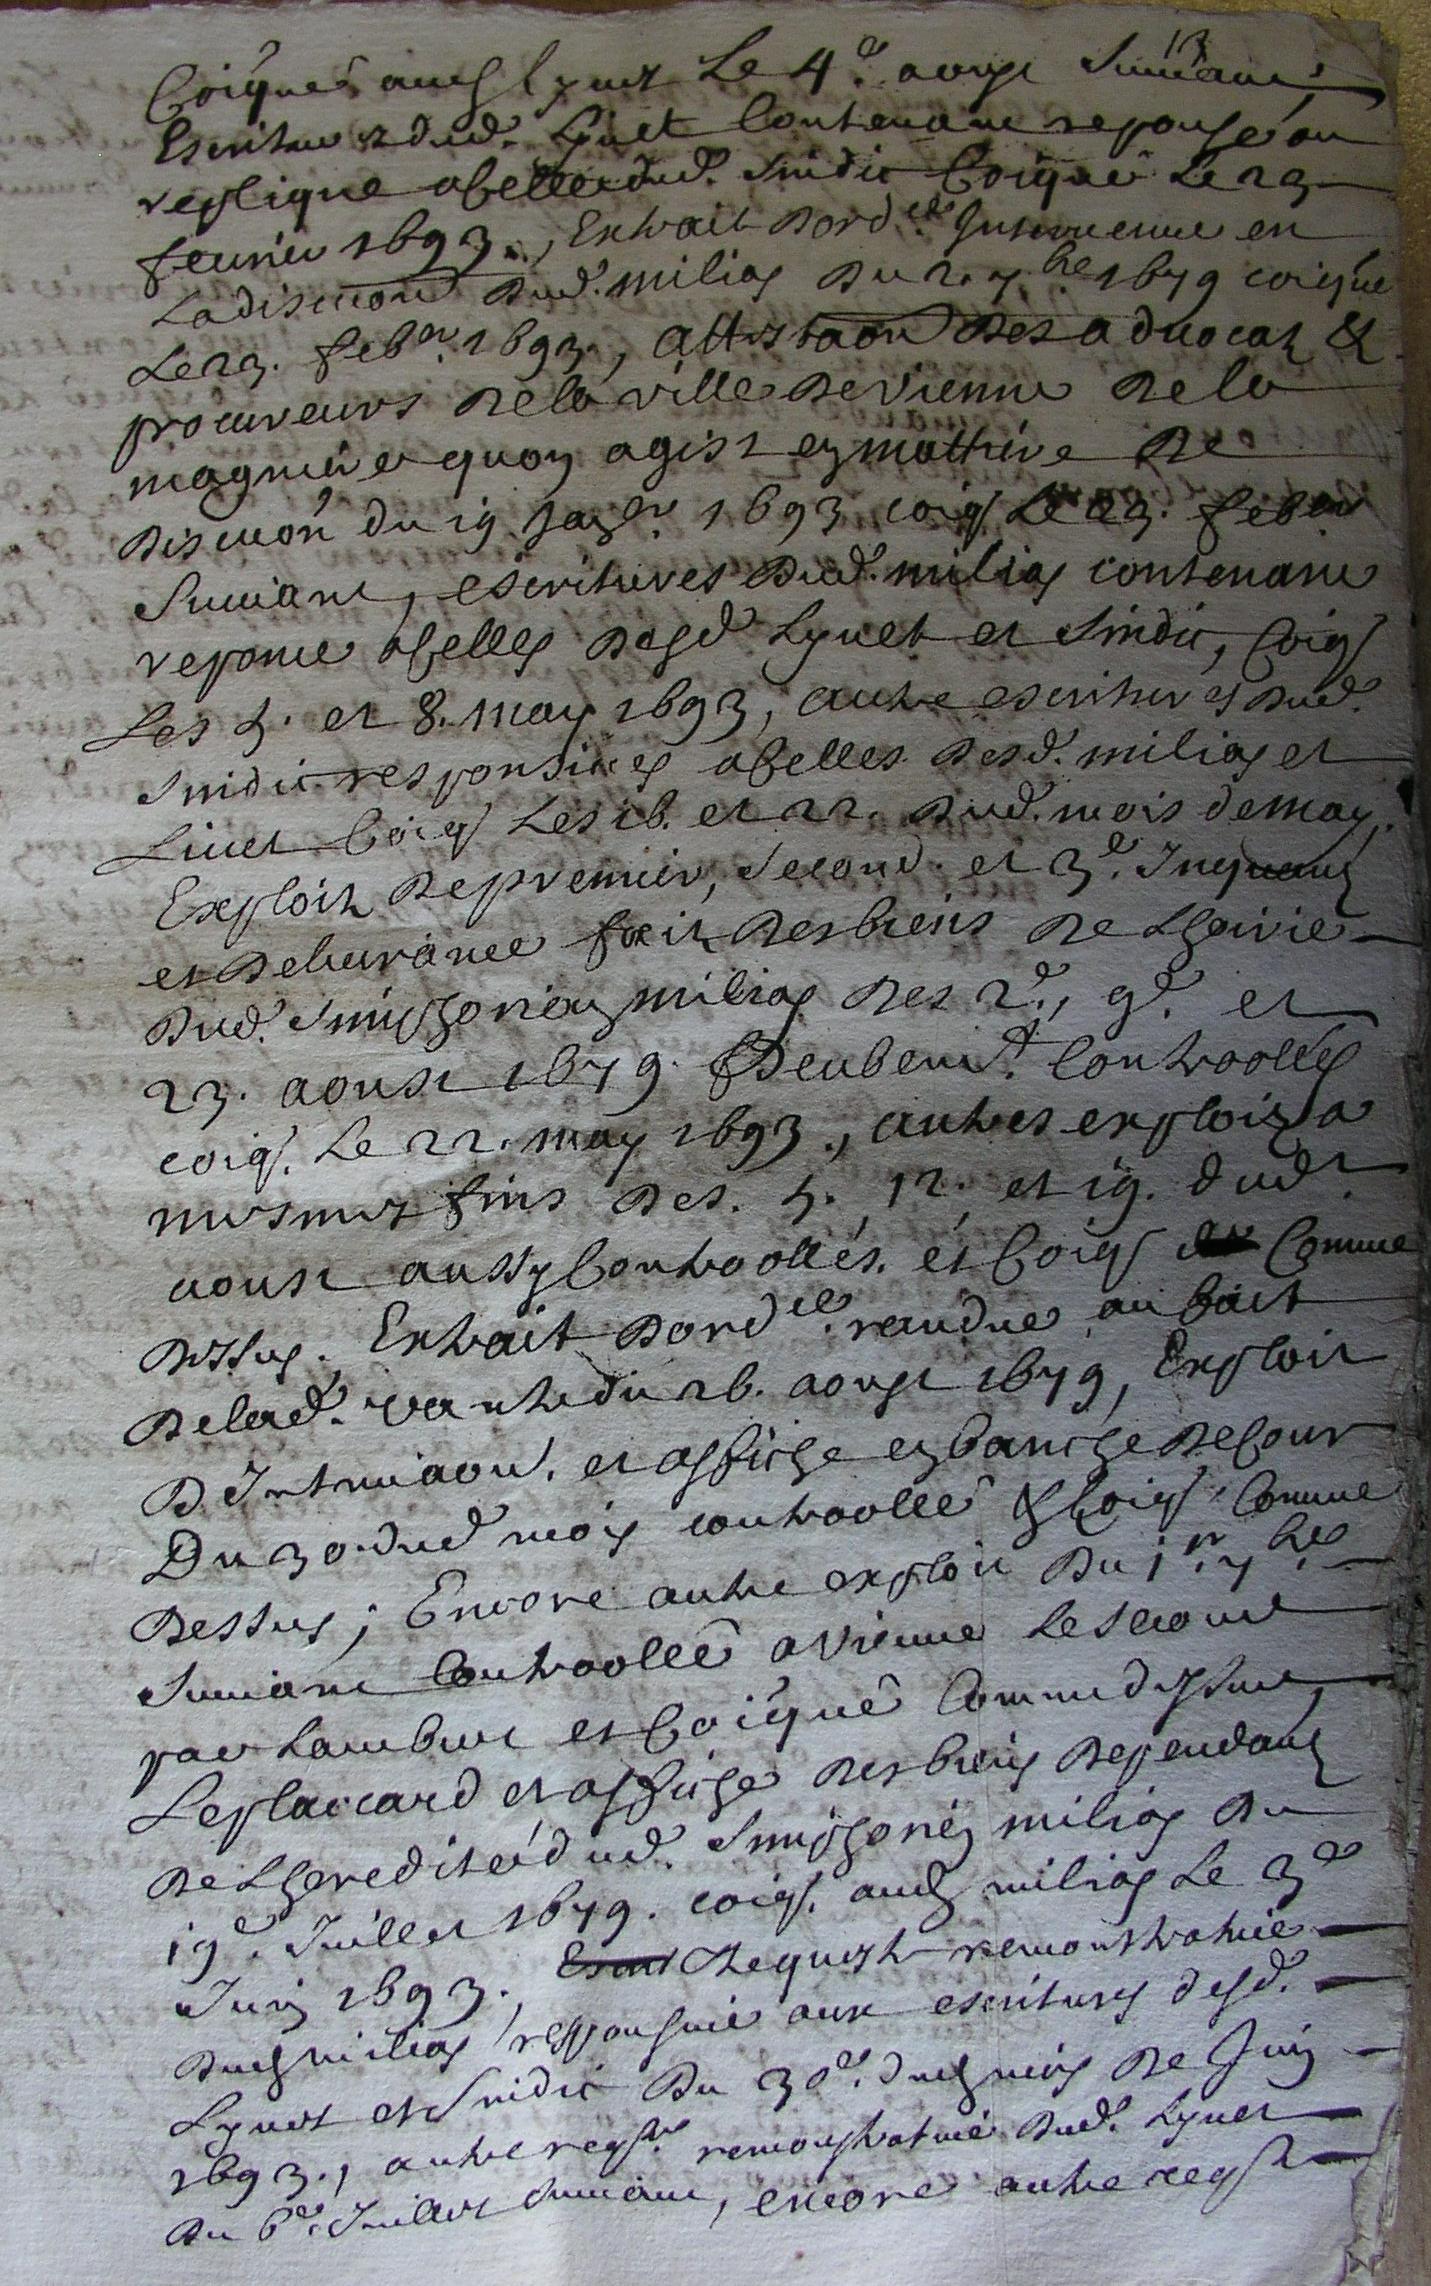 13
Coiqué aud Lyuet Le 4e aoust Suiuant,
Escritures dud. Lyuet Contenant reponse ou
replique a Celles dud. Sindic Coiqué Le 23
feurier 1693., Extrait d'ord.ce Interuenue en
La discution dud. milias du 2. 7bre 1679 coiqué
Le 23. feber. 1693., attestaon des aduocats &
procureurs de la ville de vienne de la
magniere quon agist en mattiere de
discuon du 19 Januier 1693 coiq Le 23. feber
Suiuant, escritures dud. milias contenant
reponce a Celles desd Lyuet et Sindic, Coiq
Les 5. et 8. may 1693, autre escritures dud.
Sindic responsiues a Celles desd. milias et
Liuet Coiq Les 16. et 22. dud. mois de may.
Exploits de premier, Second. et 3e. Inquants
et deliurance faits des biens de Lhoirie
dud. Simphorian milias des 2e., 9e. et
23. aoust 1679. deubemt. Controollés
coiq. Le 22. may 1693., autres exploits a
mesmes fins des. 5. 12. et 19. dud.
aoust aussy Controollés. et Coiq Comme
dessus. Extrait d'ord.ce. randue au bail
de lad. vante du 26. aoust 1679, Exploit
D Intimaon. et affiche en banche de Cour
Du 30. dud mois controollé & Coiq. Comme
dessus; Encore autre exploit du 1r. 7bre
Suiuant Controollé a Vienne Le Second
par Lambert et Coiqué Comme dessus,
Le placcard et affiche des biens dependants
de Lheredité dud. Simphorien milias du
19e. Juillet 1679. coiq. aud milias Le 3e
Juin 1693., Requeste remonstratiue
dud milias responsiue aux escritures desd.
Lyuet et Sindic du 30e. dud mois de Juin
1693., autre reqte. remonstratiue dud. Lyuet
du 6e. Juillet Suiuant, encore autre reqte